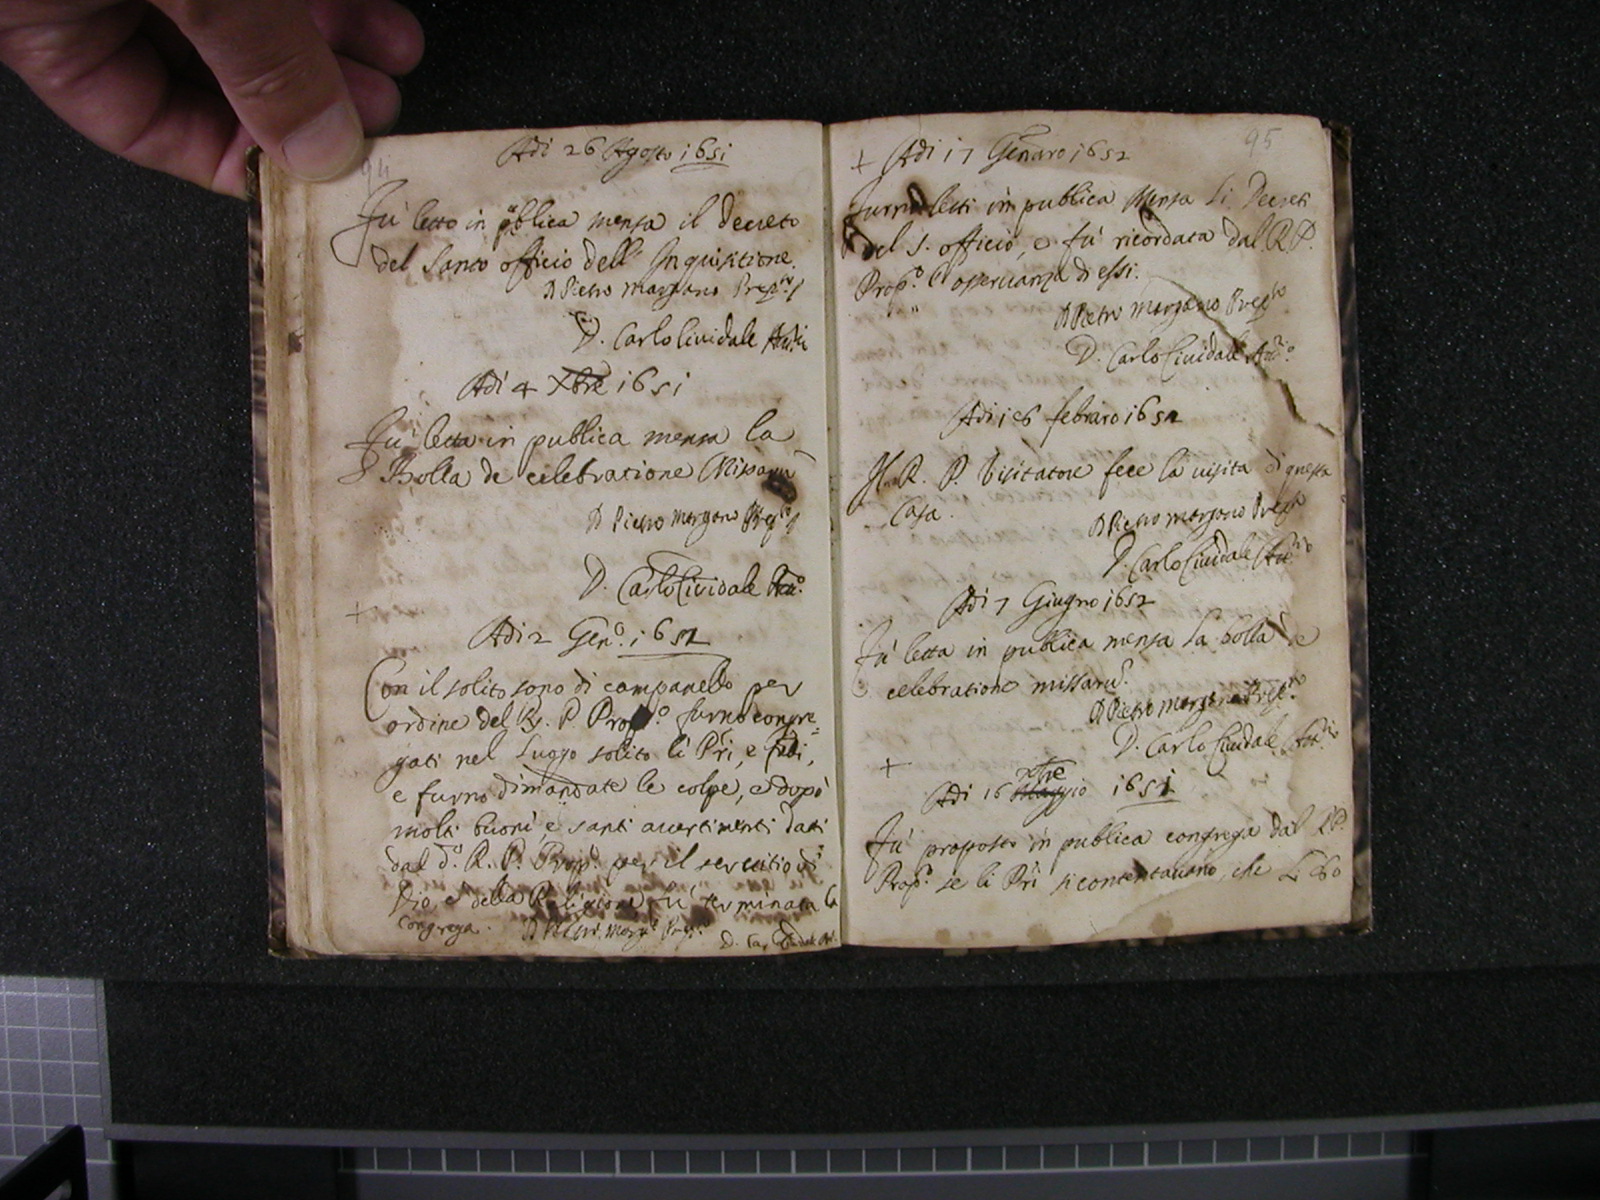 94
Adi 26 Agosto 1651
Fù letto in publica mensa il decreto
del santo officio dell' Inquisitione.
D Pietro Morgano Prepto
D. Carlo Ciuidale Attu.
Adi 4 Xbre 1651
Fù letta in publica mensa la
Bolla de celebratione Missarũ
D Pietro Morgano Prepto
D. Carlo Ciuidale Attu.
+
Adi 2 Genº. 1652
Con il solito sono di campanello per
ordine del R. P. Propº. furno congre
gati nel luogo solito li Pri, e frĩi,
e furno dimandate le colpe, e dopò
molti buoni, e santi auertimenti dati
dal dº. R. P. Propº. per il seruitio di
Dio, e della Religione fù terminata la
congrega. D Pietro Morgº. Prepº. D. Car. Ciuidale Att.
95
+ Adi 17 Gennaro 1652
Furno letti in publica mensa li Decreti
del S. officio, e fù ricordata dal R P.
Propº. l'osseruanza di essi.
D Pietro Morgano Prepto
D. Carlo Ciuidale Attº.
Adi 16 febraro 1652
Il R. P. Visitatore fece la uisita di questa
Casa.
D Pietro Morgano Prepto
D. Carlo Ciuidale Attrio
Adi 7 Giugno 1652
Fù letta in publica mensa la bolla de
celebratione missarũ.
D Pietro Morgano Prepto
D. Carlo Ciuidale Attrio
+
xbre
Adi 16 Maggio 1651
Fù proposto in publica congrega dal R P.
Propº. se li Pri si contentauano, che